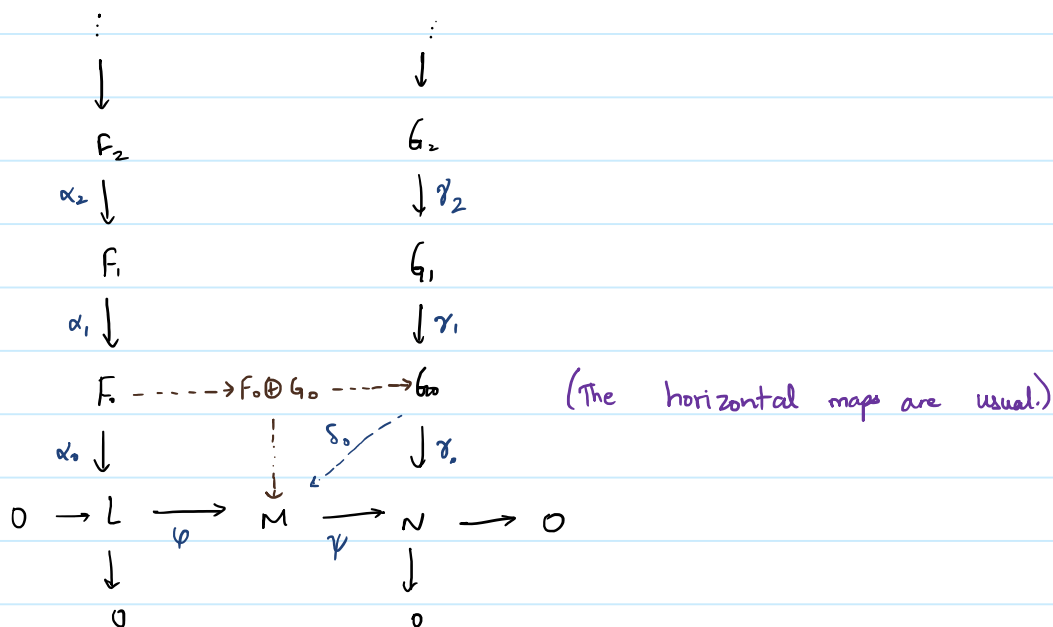 ⋮ ⋮
F₂ G₂
α₂ γ₂
F₁ G₁
α₁ γ₁
F₀ F₀⊕G₀ G₀ (The horizontal maps are usual.)
α₀ δ₀ γ₀
0 → L → M → N → 0
φ ψ
0 0